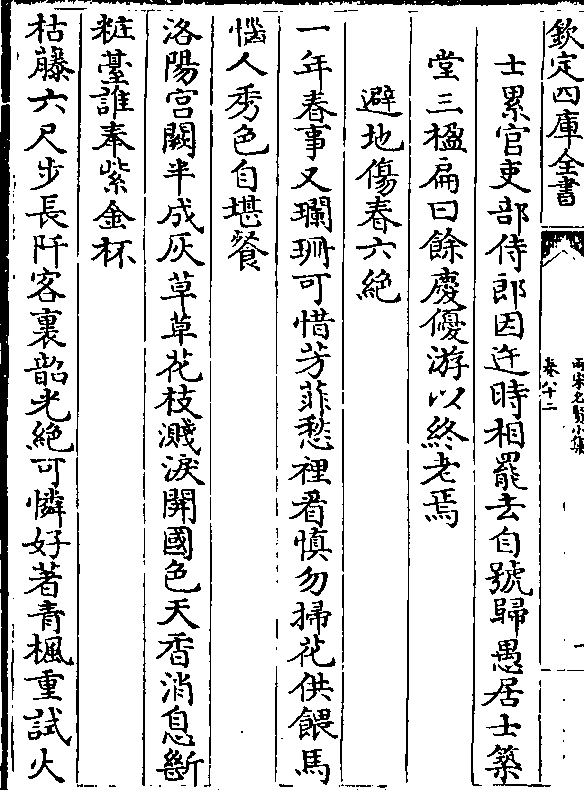 欽定四庫全書
兩宋名賢小集
卷八十二
士累官吏部侍郎因迕時相罷去自號歸愚居士築
堂三楹扁曰餘慶優游以終老焉
避地傷春六絶
一年春事又瓓珊可惜芳菲愁裡看慎勿掃花供餵馬
惱人秀色自堪餐
洛陽宫闕半成灰草草花枝濺淚開國色天香消息斷
粧臺誰奉紫金杯
枯藤六尺步長阡客裏韶光絶可憐好著青楓重試火